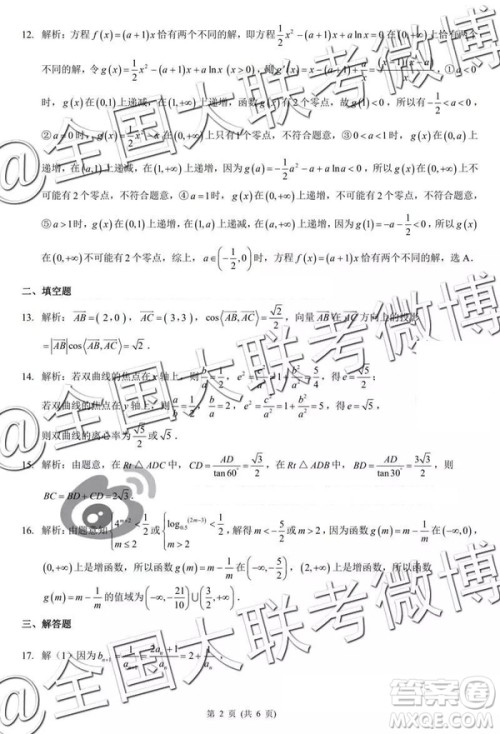 12. 解析：方程 f(x)=(a+1)x 恰有两个不同的解，即方程 1/2 x²-(a+1)x+a ln x=0 恰有两个
不同的解，令 g(x)=1/2 x²-(a+1)x+a ln x(x>0)， g'(x)=x-(a+1)+a/x=(x-1)(x-a)/x ，①a<0
时，g(x)在(0,1)上递减，在(1,+∞)上递增，函数g(x)有2个零点，故 g(1)<0，所以有 -1/2<a<0，
②a=0时，g(x)在(0,+∞)上只有1个零点，不符合题意，③0<a<1时，g(x)在(0,a)
上递增，在(a,1)上递减，在(1,+∞)上递增，因为 g(a)=-1/2 a²-a+a ln a<0，所以g(x)在(0,+∞)上不
可能有2个零点，不符合题意，④a=1时，g(x)在(0,+∞)上递增，不符合题意，
⑤a>1时，g(x)在(0,1)上递增，在(1,a)上递减，在(a,+∞)上递增，因为 g(1)=-a-1/2<0，所以
在(0,+∞)不可能有2个零点，综上，a∈(-1/2,0)时，方程 f(x)=(a+1)x 恰有两个不同的解，选 A．
二、填空题
13. 解析：AB=(2,0)，AC=(3,3)，cos⟨AB,AC⟩=√2/2，向量 AB 在 AC 方向上的投影
=|AB|cos⟨AB,AC⟩=√2．
14. 解析：若双曲线的焦点在 x 轴上，则 b/a=1/2，e²=c²/a²=1+b²/a²=5/4，得 e=√5/2；
若双曲线的焦点在 y 轴上，则 a/b=1/2，b/a=2，e²=c²/a²=1+b²/a²=5，得 e=√5，
则双曲线的离心率为 √5/2 或 √5．
15. 解析：由题意，在 Rt△ADC 中，CD=AD/tan60°=√3/2，在 Rt△ADB 中，BD=AD/tan30°=3√3/2，则
BC=BD+CD=2√3．
16. 解析：由题意知 {4^(m+2)<1/2 m≤2 或 {log0.5(2m-3)<1/2 m>2，解得 m<-5/2 或 m>2，因为函数 g(m)=m-1/m 在(-∞,0)，
(0,+∞)上是增函数，所以函数 g(m)=m-1/m 在(-∞,-5/2)，(2,+∞)上是增函数，所以函数
g(m)=m-1/m 的值域为 (-∞,-21/10)∪(3/2,+∞)．
三、解答题
17. 解（1）因为 bₙ₊₁=1/aₙ₊₁=(2aₙ+1)/aₙ=2+1/aₙ，
第 2 页 (共 6 页)
@全国大联考微博
@全国大联考微博
@全国大联考微博
答案圈
MXQE.COM